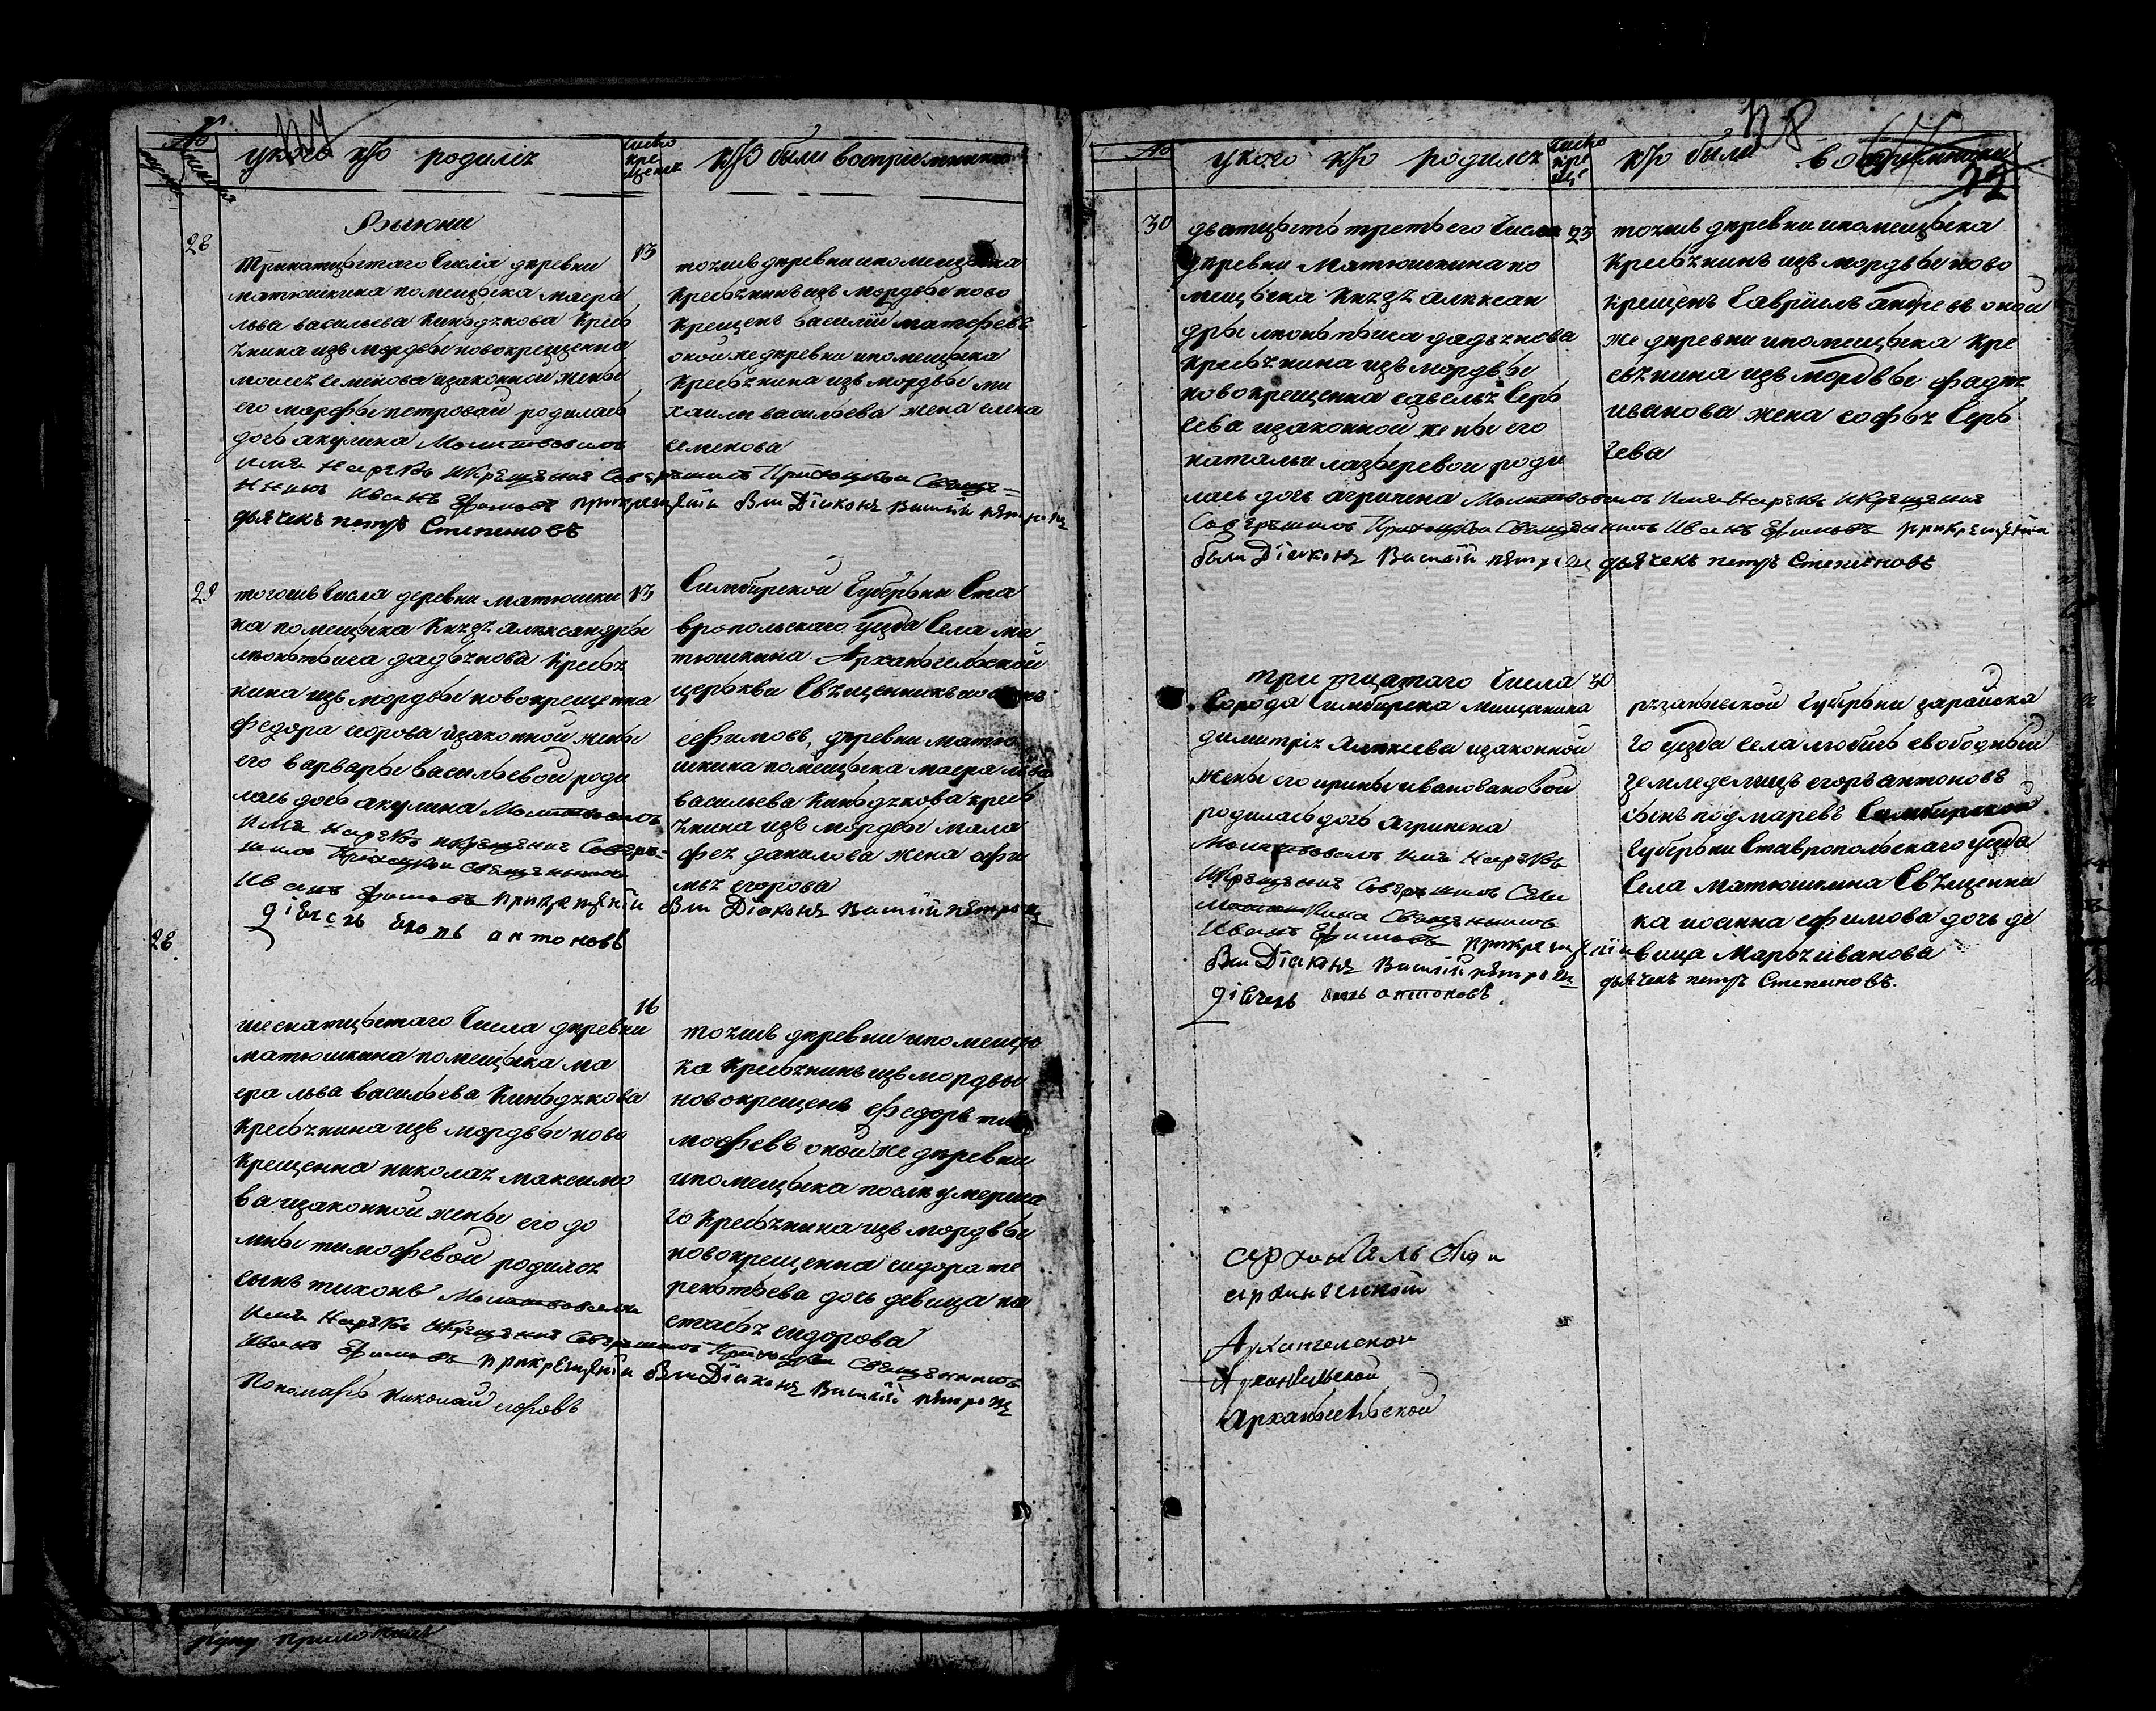 №
у кого кто родилсѧ
число крещенiѧ
кто были восприемники
в июни
28
тринатцетаго числа деревни
13
матюшкина помещика маера
льва васильева киньдѧкова кресь
ѧнина изъ мордвы новокрещенна
моисеѧ семенова и законной жены
его марфы петровай родилась
дочь акулина Молитвовалъ
имя нарѣкъ и крещение совершилъ приходский свяще=
нникъ иванъ Ефимовъ при крещении были дїаконъ василий петровъ
дьячекъ петръ Степановъ
тоежъ деревни и помещика
кресьѧнинъ изъ мордвы ново
крещенъ василий матфеевъ
оной же деревни и помещика
кресьѧнина изъ мордвы ми
хаилы васильева жена елена
семенова
29
тогожъ числа деревни матюшки
13
на помещика кнѧзѧ александры
леонтьиса дадьѧнова кресьѧ
нина изъ мордвы новокрещенна
федора егорова и законной жены
его варвары васильевой роди
лась дочь акулина Молитвовалъ
имя нарѣкъ и крещение совер=
шилъ приходский священникъ
иванъ Ефимовъ при крещении были дїаконъ василий петровъ
дїячекъ антоновъ
Симбирской губерьни Ста
вропольскаго уезда села ма
тюшкина Арханьгельской
церькви свѧщенникъ иоаннъ
ефимовъ, деревни матю
шкина помещика маера льва
васильева киньдѧкова кресь
ѧнина изъ мордвы мала
феѧ данилова жена офи
мьѧ егорова
28
шеснатцетаго числа деревни
16
матюшкина помещика ма
ера льва васильева киньдѧкова
кресьѧнина изъ мордвы ново
крещенна николаѧ максимо
ва и законной жены его до
мны тимофевой родилсѧ
сынъ тихонъ Молитвовалъ
имя нарѣкъ и крещение совершилъ приходский священникъ
иванъ Ефимовъ при крещении были дїаконъ василий петровъ
Пономарь николай егоровъ
тоежъ деревни и помещи
ка кресьѧнинъ изъ мордвы
новокрещенъ федоръ ти
мофевъ оной же деревни
и помещика после умерша
го кресьѧнина изъ мордвы
новокрещенна сидора те
реньтьева дочь девица на
стасьѧ сидорова
№
у кого кто родилсѧ
число крещ
кто были восприемники
30
дватцеть третьего числа
23
деревни матюшкина по
мещика кнѧзѧ алексан
дры леоньтьиса дадьѧнова
кресьѧнина изъ мордвы
новокрещенна савельѧ серь
геева и законной жены его
натальи лазыревой роди
лась дочь агрипена Молитвовалъ имя нарѣкъ и крещение
совершилъ приходский священникъ иванъ Ефимовъ при крещении
были дїаконъ василий петровъ дьячекъ петръ Степановъ
тоежъ деревни и помещика
кресьѧнинъ изъ мордвы ново
крещенъ гаврiилъ андреевъ оной
же деревни и помещика кре
сьѧнина изъ мордвы фадеѧ
иванова жена софьѧ серь
геева
тритцатаго числа
30
города Симбирска мищанина
димитриѧ алексеева и законной
жены его ирины ивановановой
родилась дочь агрипена
Молитвовалъ имя нарѣкъ
и крещение совершилъ села
Матюшкина священникъ
иванъ Ефимовъ при крещении
были дїаконъ василий петровъ дьячекъ петръ Степановъ.
дїячекъ антоновъ
рѧзаньской губерьни зарайска
го уезда села любичь свободный
земледелецъ егоръ антоновъ
сынъ подмаревъ Симбирской
губерьни Ставропольскаго уезда
села матюшкина свѧщенни
ка иоанна ефимова дочь де
вица марьѧ иванова
архангельской
Архангелской
Архангельской
Арханьгельской